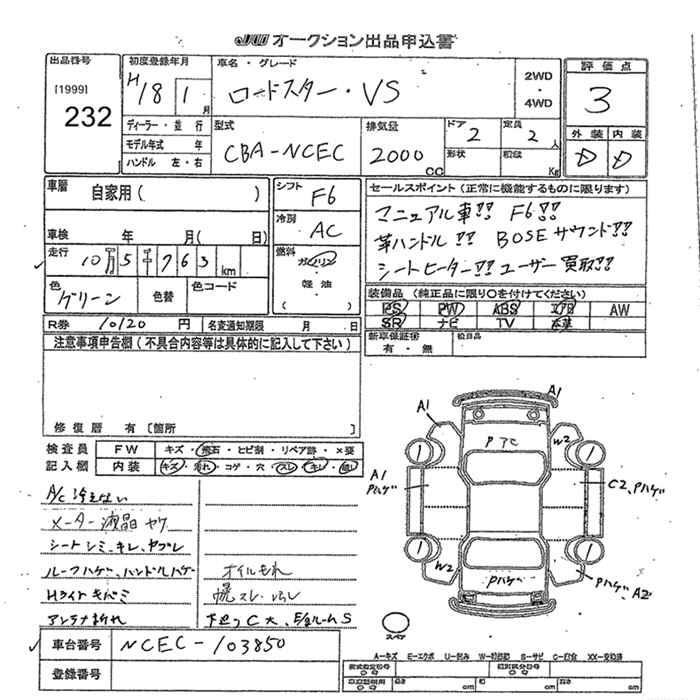 JU オークション出品申込書
出品番号
[1999]
232
初度登録年月
H18 1月
車名・グレード
ロードスター・VS
2WD
・
4WD
評価点
3
外装 内装
D D
ディーラー・並行
モデル年式 年
ハンドル 左・右
型式
CBA-NCEC
排気量
2000 CC
ドア 2
形状
定員 2人
Kg
車歴 自家用( )
車検 年 月( 日)
走行 10万5千763 km
色 グリーン
色替
色コード
シフト F6
冷房 AC
燃料 ガソリン
・
軽油
( )
セールスポイント(正常に機能するものに限ります)
マニュアル車!! F6!!
革ハンドル!! BOSEサウンド!!
シートヒーター!! ユーザー買取!!
装備品(純正品に限り○を付けてください)
PS PW ABS エアB AW
SR ナビ TV 本革
新車保証書
有・無
R券 10120 円 名変通知期限 月 日
注意事項申告欄(不具合内容等は具体的に記入して下さい)
修復歴 有〔箇所
検査員
記入欄
FW キズ・飛石・ヒビ割・リペア跡・×要
内装 キズ・汚れ・コゲ・穴・スレ・キレ・
A/C冷えない
メーター液晶ヤケ
シートシミ、キレ、ヤブレ
ルーフハゲ、ハンドルハゲ
Hライトキバミ
アンテナ折れ
オイルもれ
幌スレ・
下廻りC大、E/gルームS
車台番号 NCEC-103850
登録番号
A1
A1
PアC
W2
A1
Pハゲ
C2、Pハゲ
W2
Pハゲ
Pハゲ A2
スペア
A-キズ E-エクボ U-凹み W-補修跡 S-サビ C-腐食 XX-交換済
長さ cm 幅 cm 高さ cm